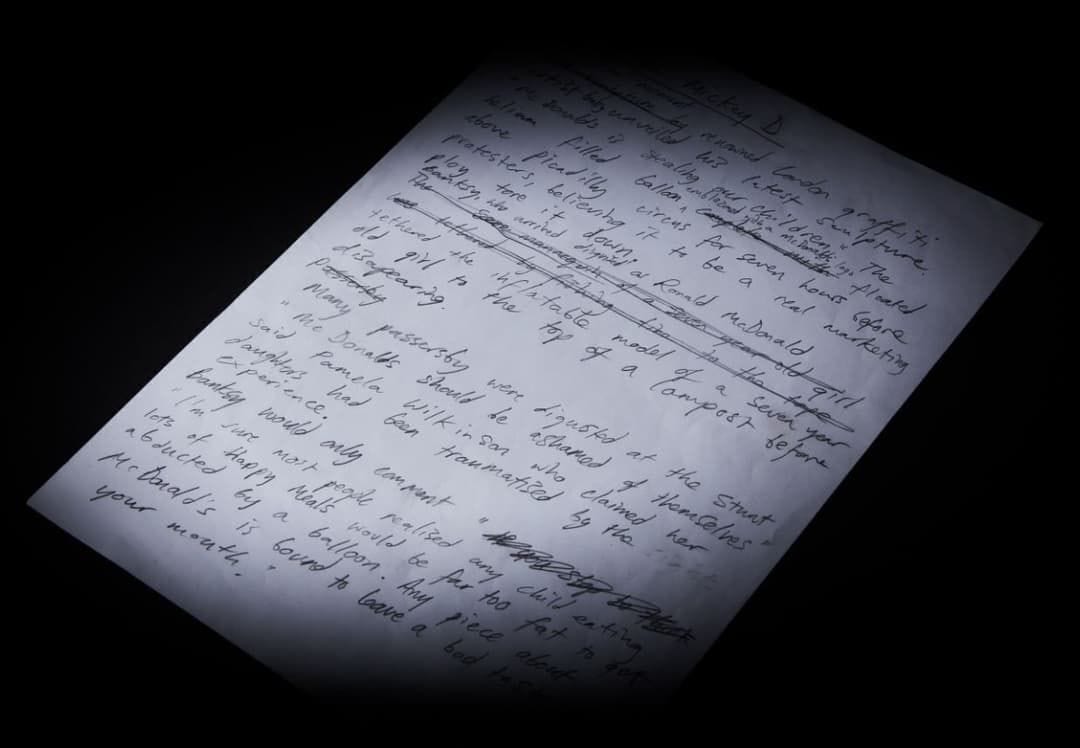 Mickey D
renowned London graffiti
unveiled his latest sculpture.
"Mc Donalds is stealing our children". The
McDonalds logo
helium filled ballan floated
above Picadilly circus for seven hours before
protesters, believing it to be a real marketing
ploy tore it down.
Banksy who arrived digused as Ronald McDonald
The mannequin of a seven year old girl
was tetherd by fishing line to the
tetherd the inflatable model of a seven year
old girl to the top of a lampost before
disapearing.
Passersby
Many passersby were digusted at the stunt
"Mc Donalds should be ashamed of themselves"
said Pamela Wilkinson who claimed her
daughters had been traumatised by the
experience.
Banksy would only comment "
"I'm sure most people realised any child eating
lots of Happy Meals would be far too fat to get
abducted by a balloon. Any piece about
McDonald's is bound to leave a bad
your mouth."